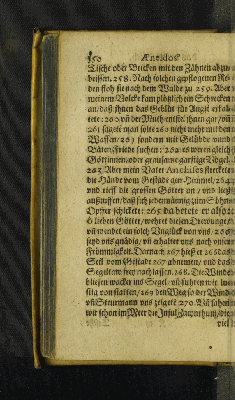 150 Æneidos
Tische oder Brocken mit den Zähnen
beissen. 258. Nach solchen gepflogenen
den floh sie nach dem Walde zu 259. Aber
meinem Volcke kam plötzlich ein Schrecken
an/daß ihnen das Geblüt für Angst
te: 260 vñ der Muth entfiel ihnen gar/
261 sagete man solte 262 nicht mehr mit den
Waffen/263 sondern mit Gelübde vnnd
Bäten Friede suchen: 264 es weren gleich
Göttinen/oder grewsame garstige Vögel.
263. Aber mein Vater Anchises streckete
die Hände vom Gestade gen Himmel/264
vnd rieff die grossen Götter an / vnd ließ
außruffen/daß sich jederman
Opffer schickete: 265 da bätete er also:
ô lieben Götter/wehret diesen
vñ wendet ein solch Unglück von vns/266
seyd vns gnädig/vñ erhaltet vns nach vnserer
Frömmigkeit. Darnach 267 hieß er 268 das
Seil vom Gestade 267 abnemen/ vnd das
Segeltaw frey nachlassen. 268. Die Winde
bliesen wacker ins Segel/vñ fuhren wir
269 den Weg so der Wind
vñ Steurmann vns zeigete 270. Vñ sahen
wir schon im Meer die Insul Zacynthum/
viel